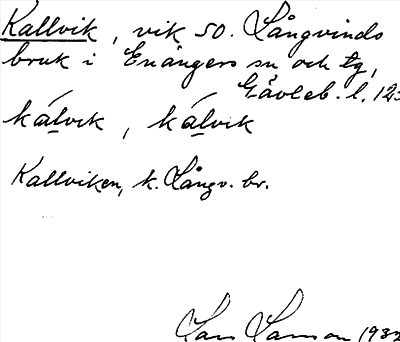 Kallvik, vik SO. Långvinds
bruk i Enångers sn och tg,
Gävleb. l. 123
kálvik, kálvik
Kallviken, k. Långv. br.
Lars Larsson 1932